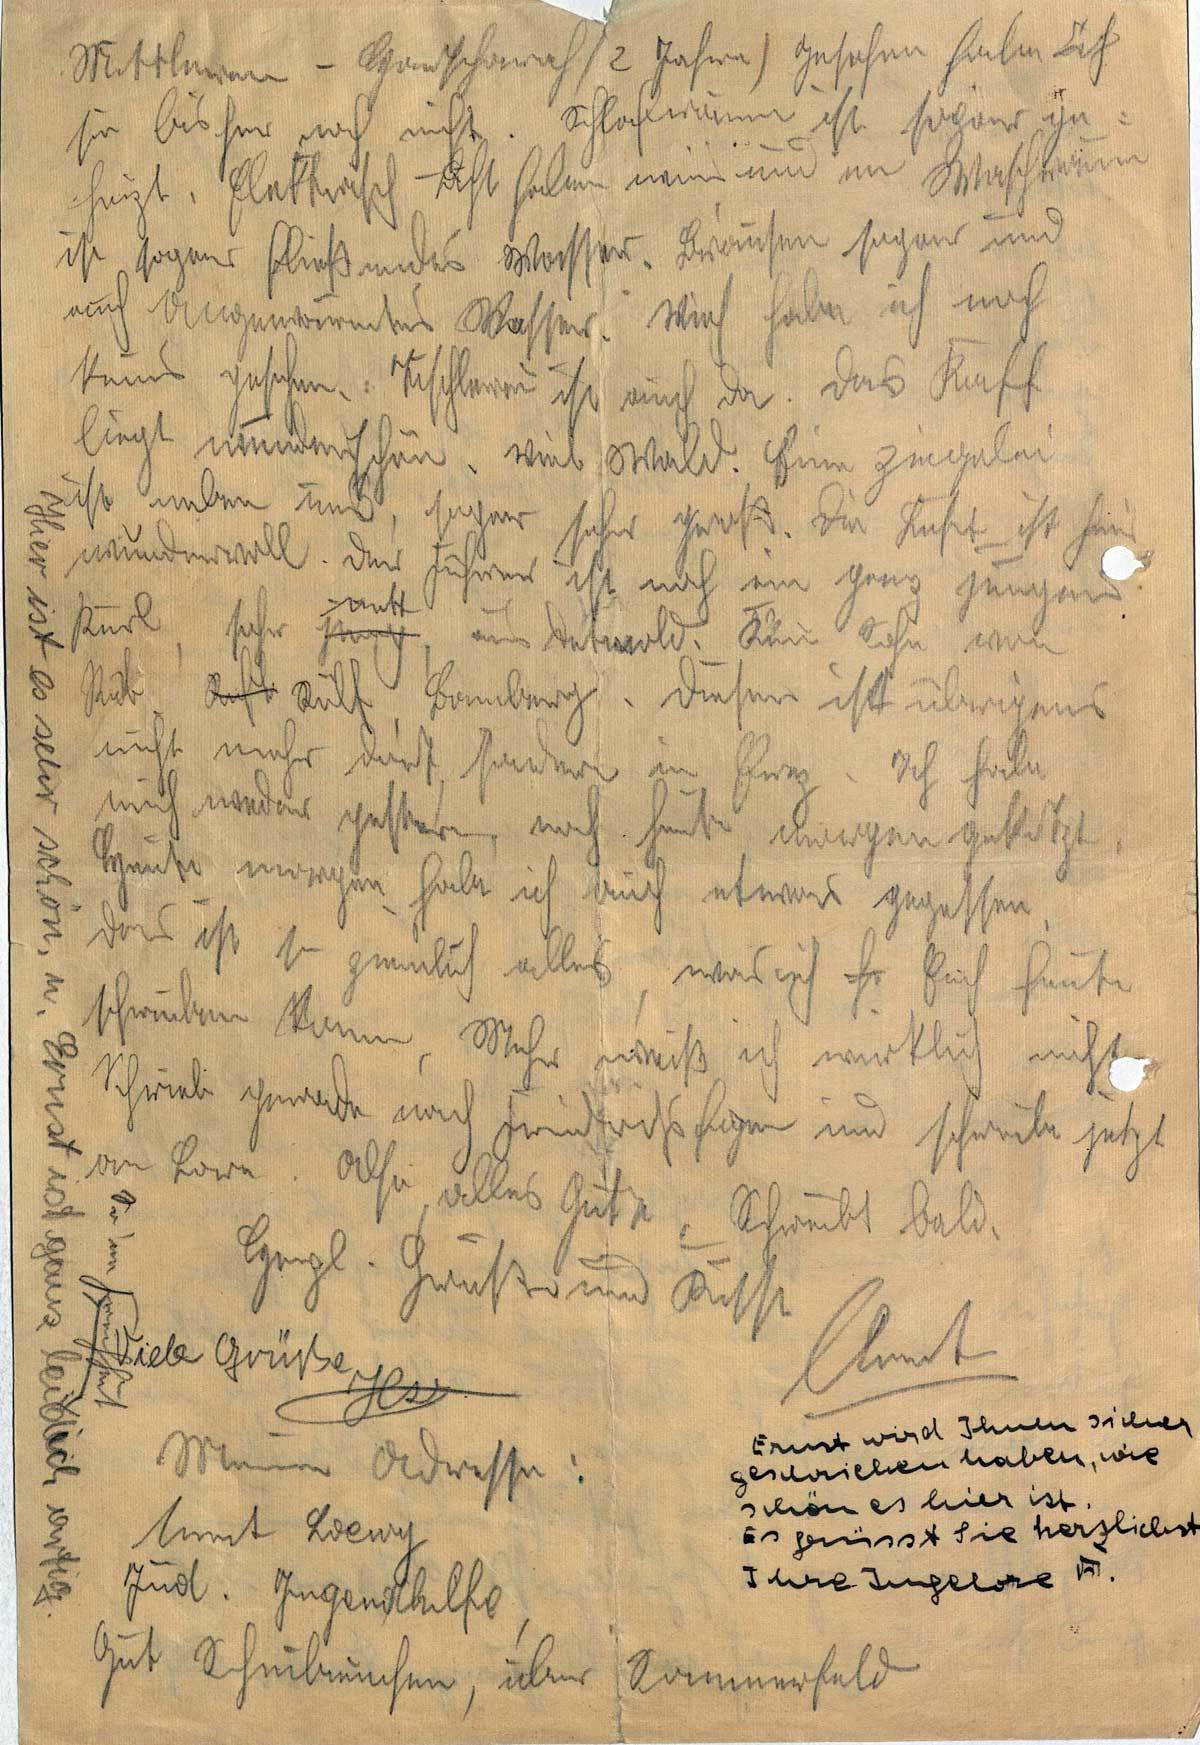 Mittleren - Hachscharah (2 Jahre) gesehen habe ich
sie bisher noch nicht. Schlafräume ist sogar ge=
heizt. Elektrisch Licht haben wir und im Waschraum
ist sogar fließendes Wasser. Brausen sogar und
auch angewärmtes Wasser. Vieh habe ich noch
keins gesehen. Tischlerei ist auch da. Das Kaff
liegt wunderschön. viel Wald. Eine Ziegelei
ist neben uns, sogar sehr groß. Die Luft ist hier
wundervoll. Der Führer ist noch ein ganz junger
Kerl, sehr nett, aus Detmold. Kein Sohn von
Rab. Rülf, Bamberg. Dieser ist übrigens
nicht mehr dort, sondern in Erez. Ich habe
mich weder gestern, noch heute morgen gekotzt.
Heute morgen habe ich auch etwas gegessen.
Das ist so ziemlich alles, was ich Euch heute
schreiben kann. Mehr weiß ich wirklich nicht
Schrieb gerade nach Friedrichshagen und schreibe jetzt
an Lore. Also, alles Gute, Schreibt bald.
Herzl. Grüße und Küsse
Ernst
Viele Grüße
Ilse
Ernst wird Ihnen sicher
geschrieben haben, wie
schön es hier ist.
Es grüsst Sie herzlichst
Ihre Ingelore
Meine Adresse:
Ernst Loewy
Jüd. Jugendhilfe,
Gut Schniebinchen, über Sommerfeld
Hier ist es sehr schön, u. Ernst ist ganz leidlich artig.